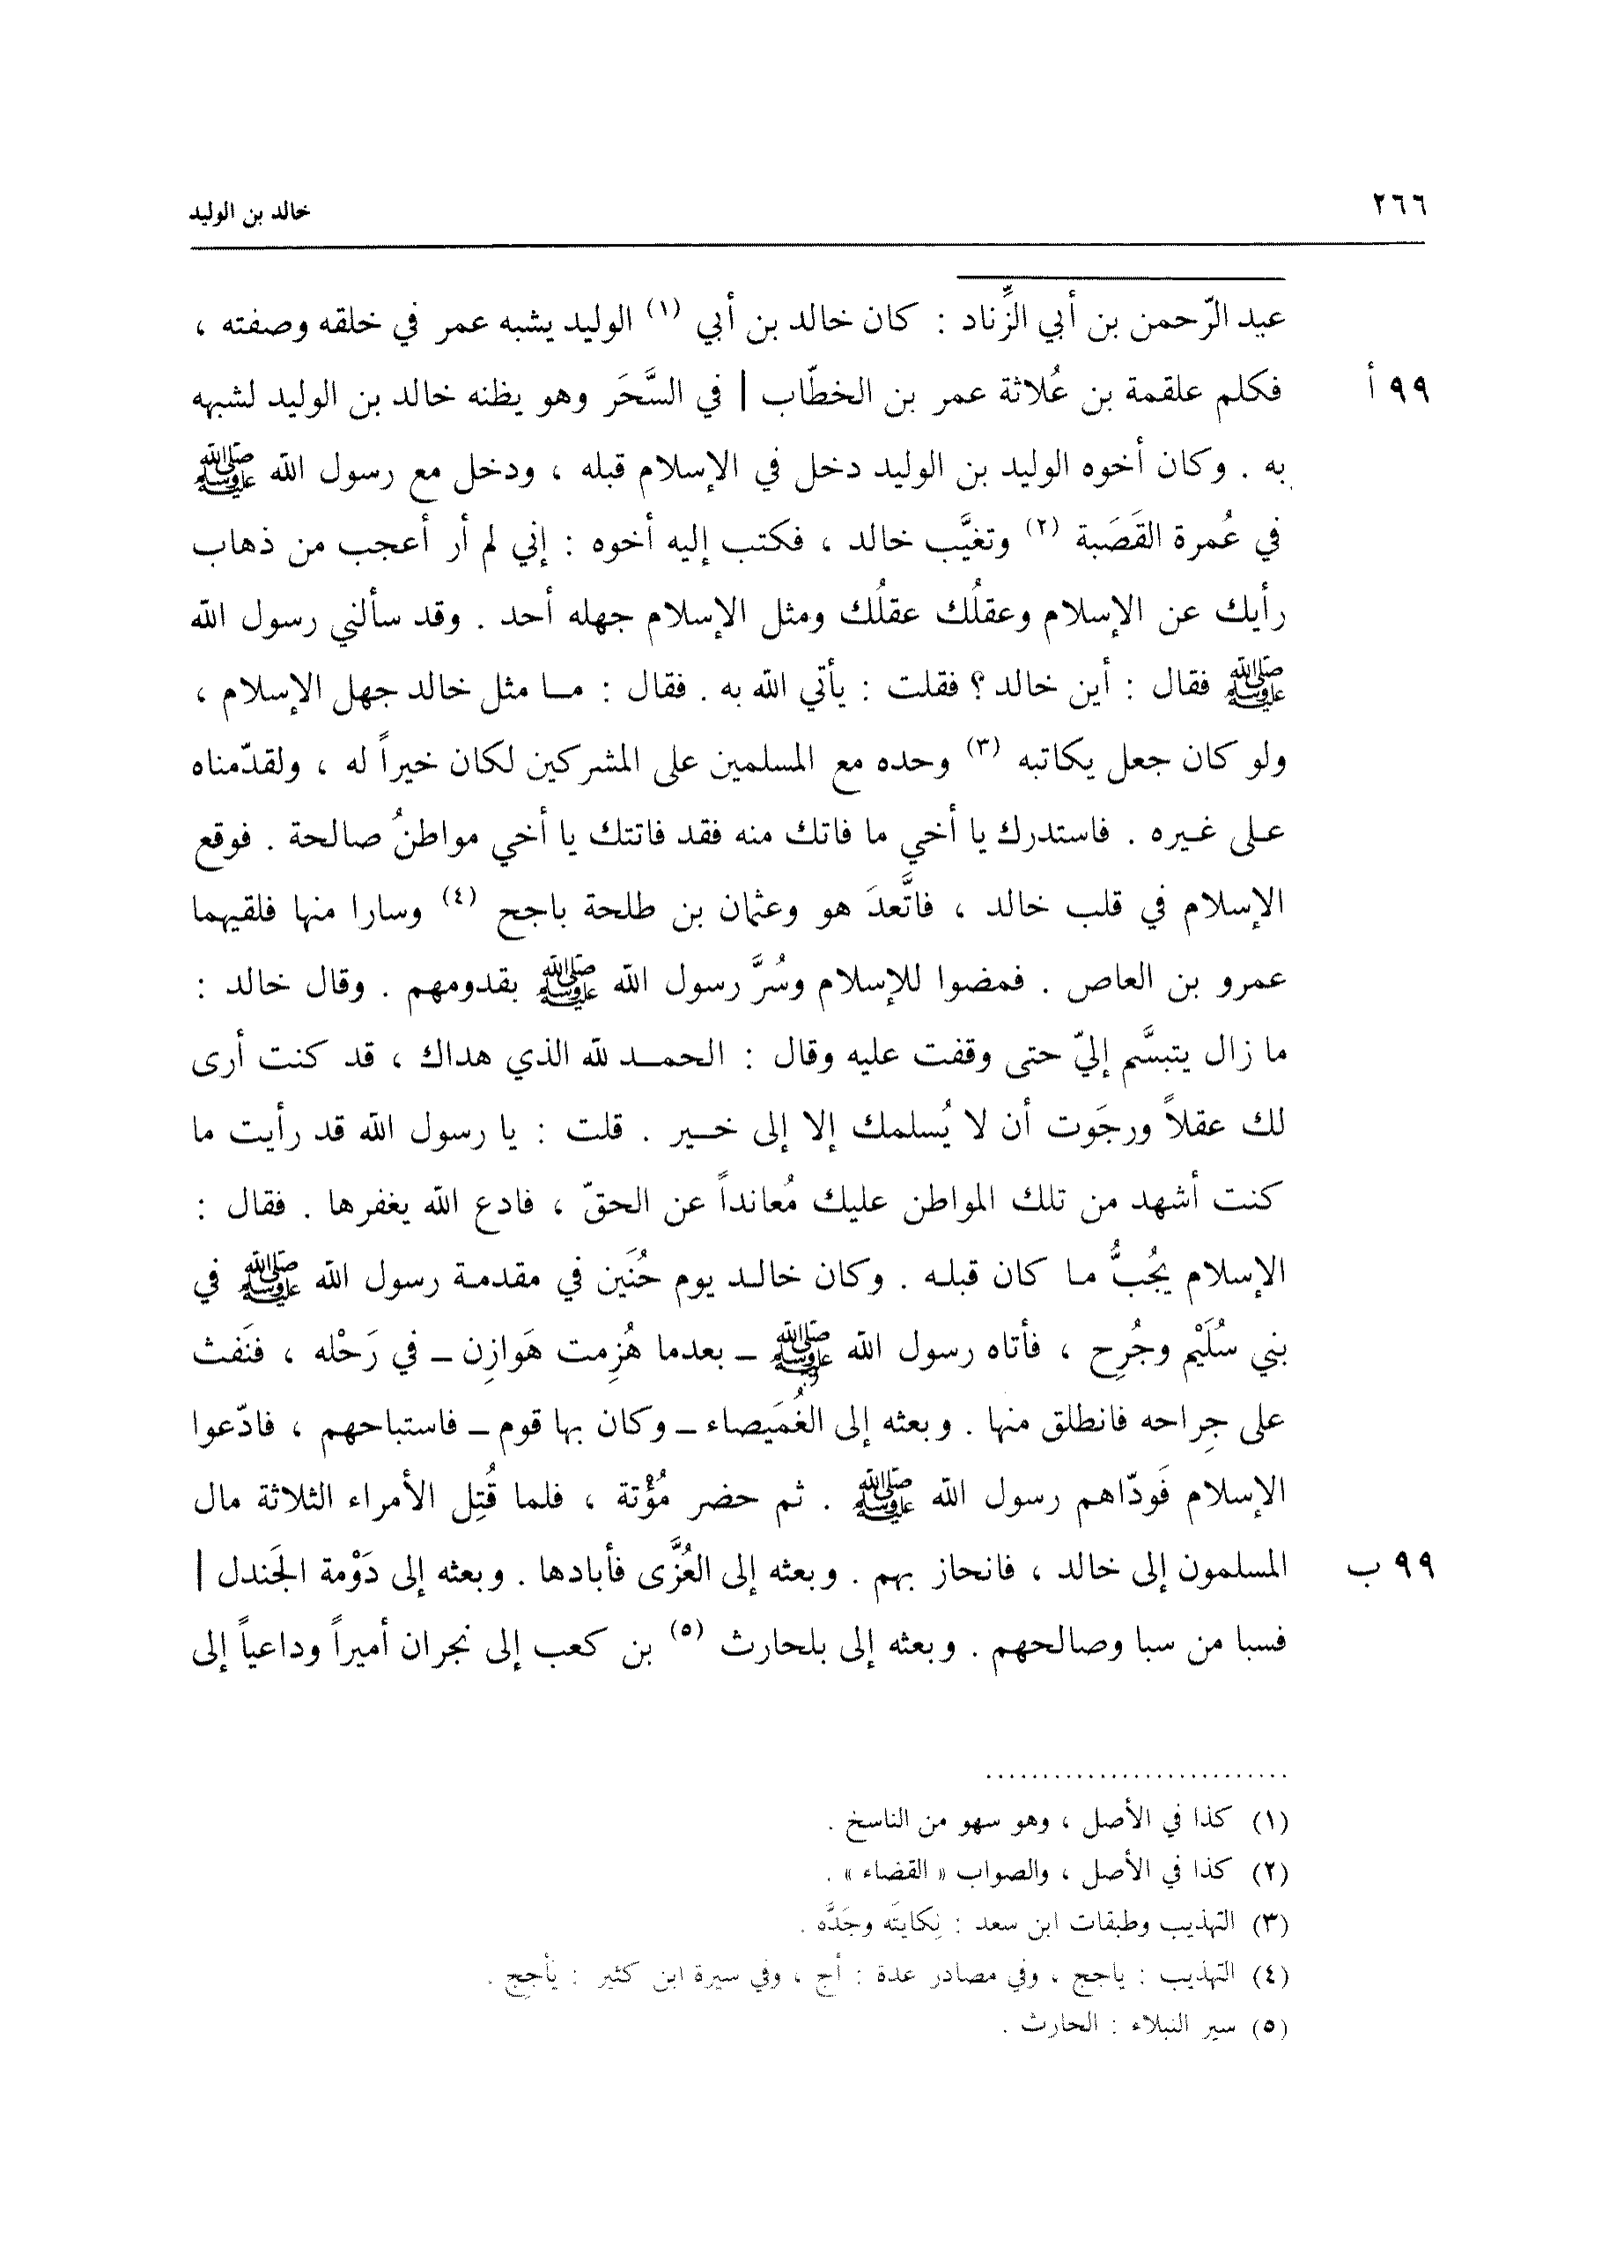 ٢٦٦
خالد بن الوليد
عبد الرّحمن بن أبي الزِّناد : كان خالد بن أبي (١) الوليد يشبه عمر في خلقه وصفته ،
٩٩ أ
فكلم علقمة بن عُلاثة عمر بن الخطّاب | في السَّحَر وهو يظنه خالد بن الوليد لشبهه
به . وكان أخوه الوليد بن الوليد دخل في الإسلام قبله ، ودخل مع رسول الله ﷺ
في عُمرة القَصَبة (٢) وتغيَّب خالد ، فكتب إليه أخوه : إني لم أر أعجب من ذهاب
رأيك عن الإسلام وعقلُك عقلُك ومثل الإسلام جهله أحد . وقد سألني رسول الله
ﷺ فقال : أين خالد ؟ فقلت : يأتي الله به . فقال : ما مثل خالد جهل الإسلام ،
ولو كان جعل يكاتبه (٣) وحده مع المسلمين على المشركين لكان خيراً له ، ولقدّمناه
على غيره . فاستدرك يا أخي ما فاتك منه فقد فاتتك يا أخي مواطنُ صالحة . فوقع
الإسلام في قلب خالد ، فاتَّعدَ هو وعثمان بن طلحة باجح (٤) وسارا منها فلقيهما
عمرو بن العاص . فمضوا للإسلام وسُرَّ رسول الله ﷺ بقدومهم . وقال خالد :
ما زال يتبسَّم إليّ حتى وقفت عليه وقال : الحمد لله الذي هداك ، قد كنت أرى
لك عقلاً ورجَوت أن لا يُسلمك إلا إلى خير . قلت : يا رسول الله قد رأيت ما
كنت أشهد من تلك المواطن عليك مُعانداً عن الحقّ ، فادع الله يغفرها . فقال :
الإسلام يجُبُّ ما كان قبله . وكان خالد يوم حُنَين في مقدمة رسول الله ﷺ في
بني سُلَيْم وجُرِح ، فأتاه رسول الله ﷺ ــ بعدما هُزِمت هَوازِن ــ في رَحْله ، فنَفث
على جِراحه فانطلق منها . وبعثه إلى الغُمَيصاء ــ وكان بها قوم ــ فاستباحهم ، فادّعوا
الإسلام فَودّاهم رسول الله ﷺ . ثم حضر مُؤْتة ، فلما قُتِل الأمراء الثلاثة مال
٩٩ ب
المسلمون إلى خالد ، فانحاز بهم . وبعثه إلى العُزَّى فأبادها . وبعثه إلى دَوْمة الجَندل |
فسبا من سبا وصالحهم . وبعثه إلى بلحارث (٥) بن كعب إلى نجران أميراً وداعياً إلى
(١) كذا في الأصل ، وهو سهو من الناسخ .
(٢) كذا في الأصل ، والصواب « القضاء » .
(٣) التهذيب وطبقات ابن سعد : نِكايتَه وجَدَّه .
(٤) التهذيب : ياجج ، وفي مصادر عدة : أج ، وفي سيرة ابن كثير : يأجج .
(٥) سير النبلاء : الحارث .